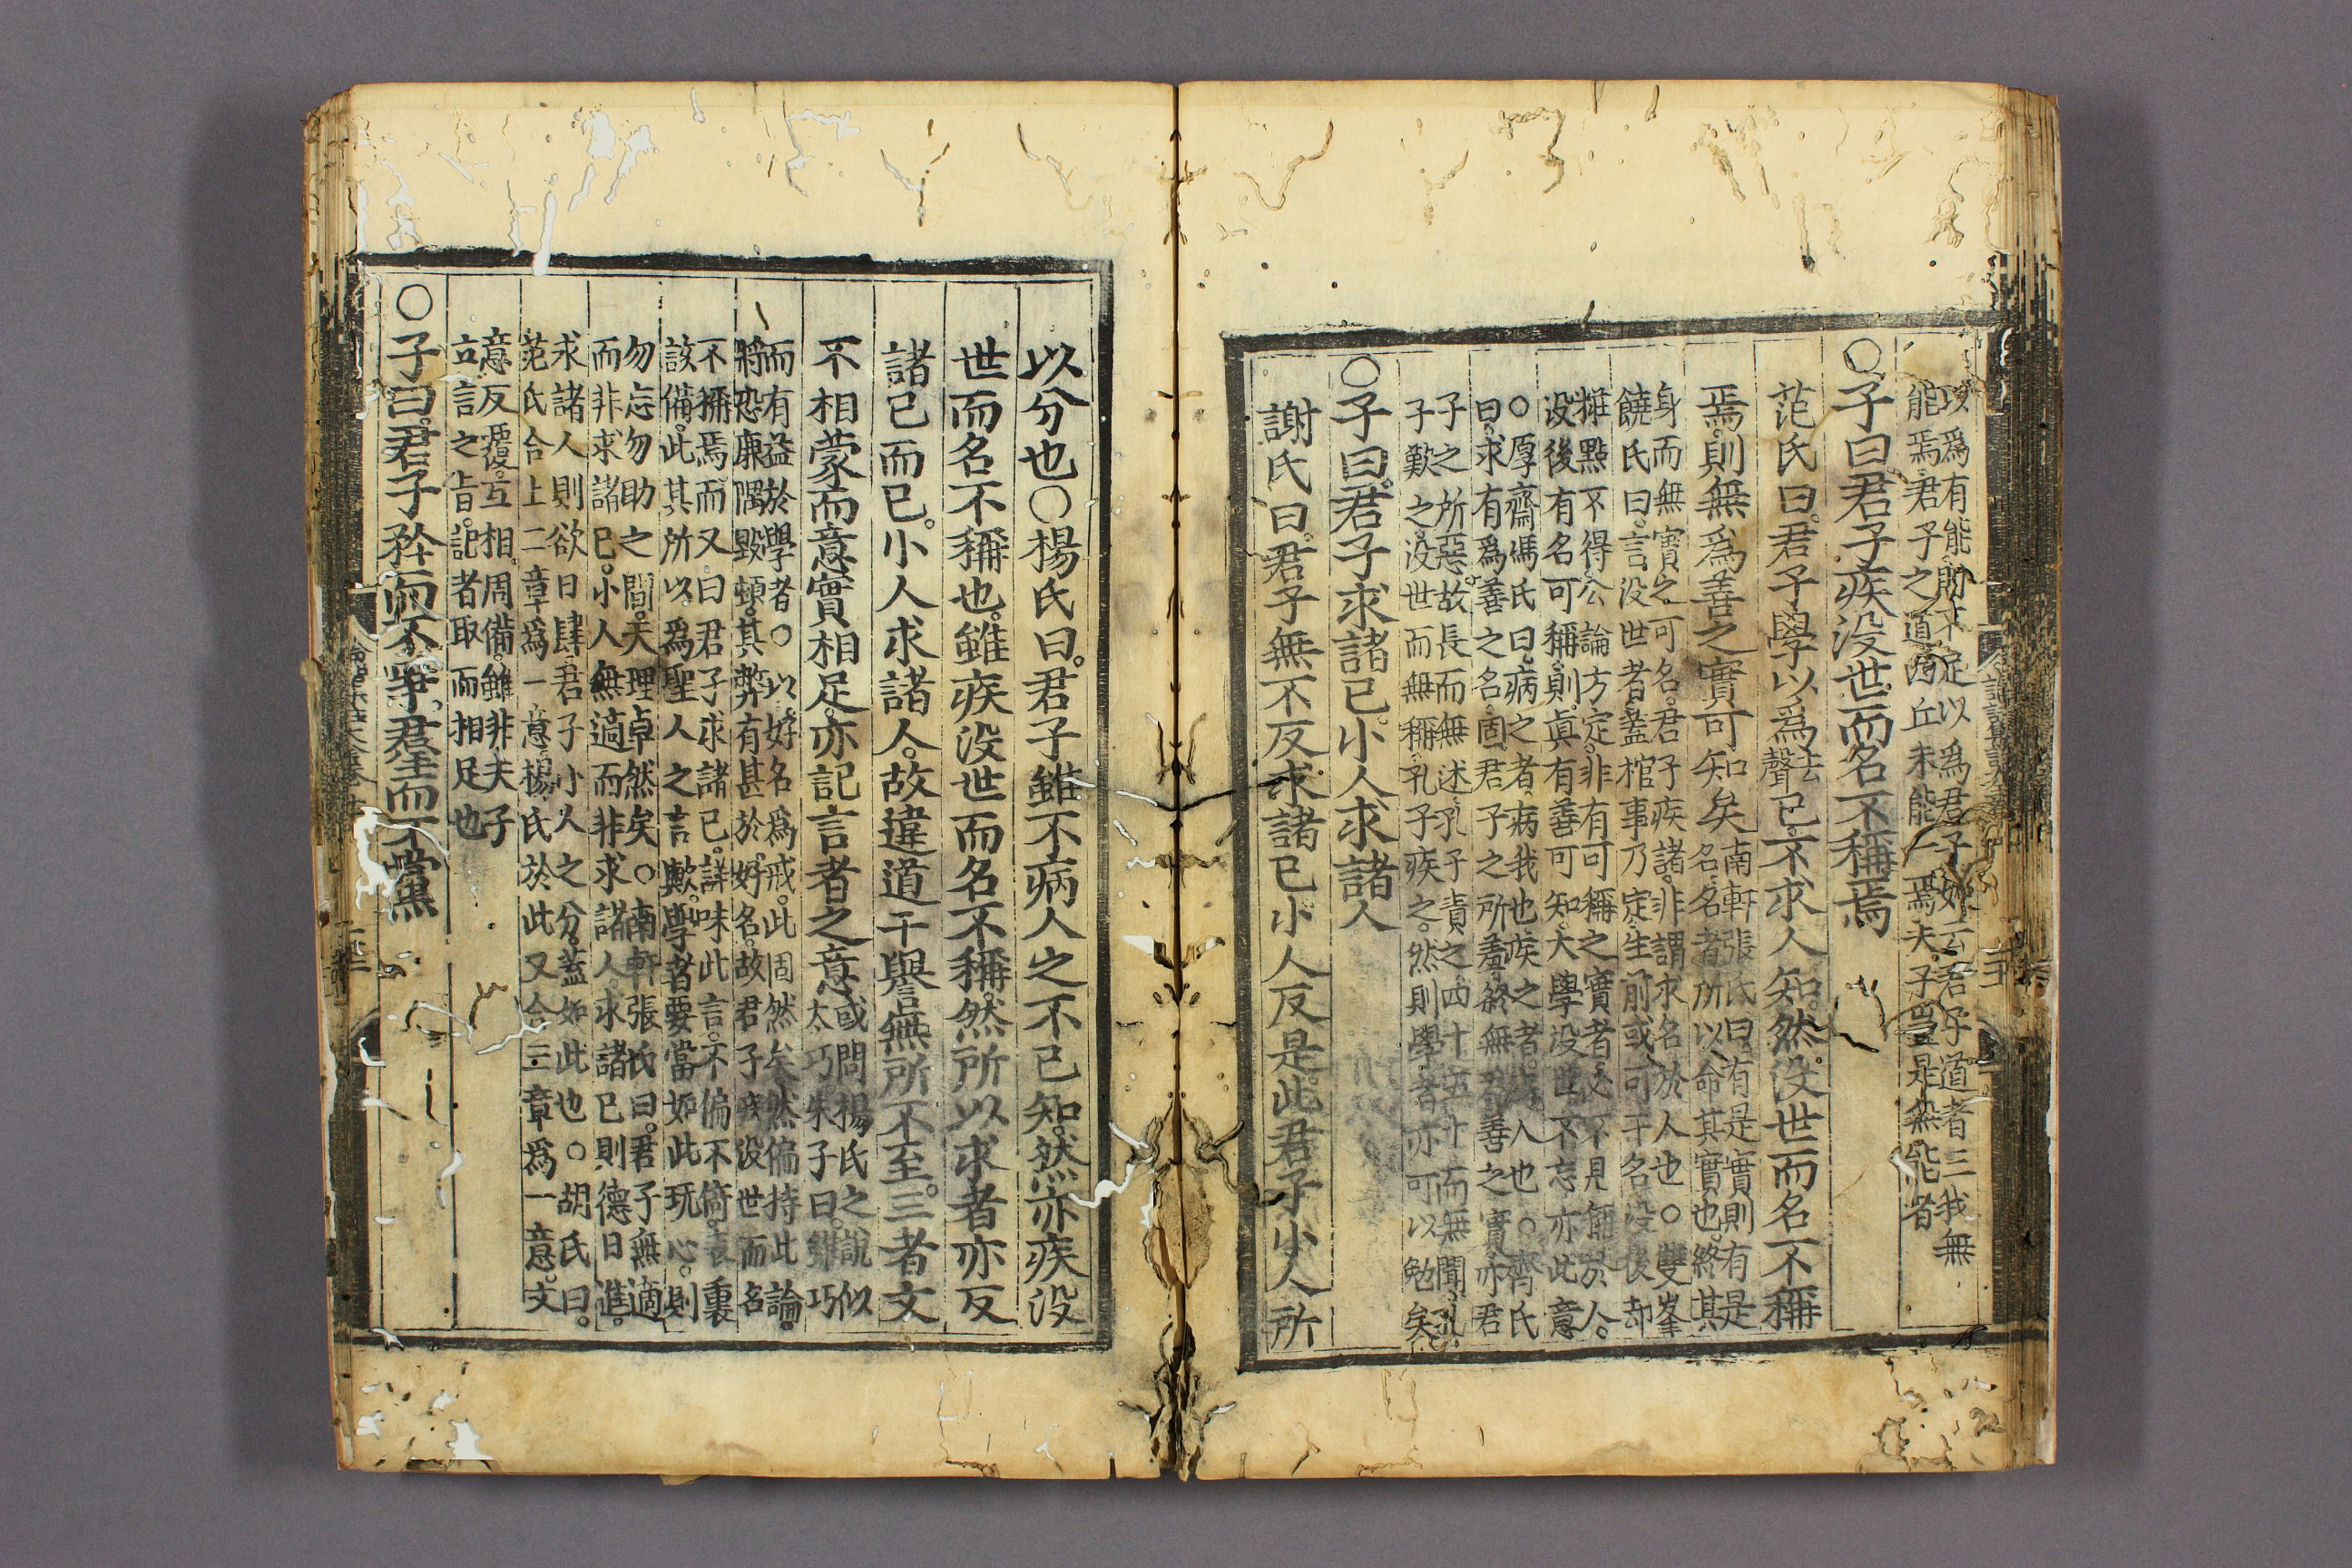 爲有能則不足以爲君子如云君子道者三我無
能焉君子之道四丘未能一焉夫子豈是無能者
○子曰君子疾没世而名不稱焉
范氏曰君子學以爲去聲已不求人知然没世而名不稱
焉則無爲善之實可知矣南軒張氏曰有是實則有是
名名者所以命其實也終其
身而無實之可名君子疾諸非謂求名於人也○雙峯
饒氏曰言没世者蓋棺事乃定生前或可干名没後却
摧點不得公論方定非有可稱之實者必不見稱於人
没後有名可稱則眞有善可知大學没世不忘亦此意
○厚齋馮氏曰病之者病我也疾之者疾人也○齊氏
曰求有爲善之名固君子之所羞終無爲善之實亦君
子之所惡故長而無述孔子責之四十五十而無聞孔
子歎之没世而無稱孔子疾之然則學者亦可以勉矣
○子曰君子求諸已小人求諸人
謝氏曰君子無不反求諸已小人反是此君子小人所
以分也○楊氏曰君子雖不病人之不已知然亦疾没
世而名不稱也雖疾没世而名不稱然所以求者亦反
諸已而已小人求諸人故違道干譽無所不至三者文
不相蒙而意實相足亦記言者之意或問楊氏之說似
太巧朱子曰雖巧
而有益於學者○以好名爲戒此固然矣然偏持此論
將恐廉隅毀頓其弊有甚於好名故君子疾没世而名
不稱焉而又曰君子求諸已詳味此言不偏不倚表裏
該備此其所以爲聖人之言歟學者要當如此玩心則
勿忘勿助之間天理卓然矣○南軒張氏曰君子無適
而非求諸已小人無適而非求諸人求諸已則德日進
求諸人則欲日肆君子小人之分蓋如此也○胡氏曰
范氏合上二章爲一意楊氏於此又合三章爲一意文
意反覆互相周備雖非夫子
立言之旨記者取而相足也
○子曰君子矜而不爭羣而不黨